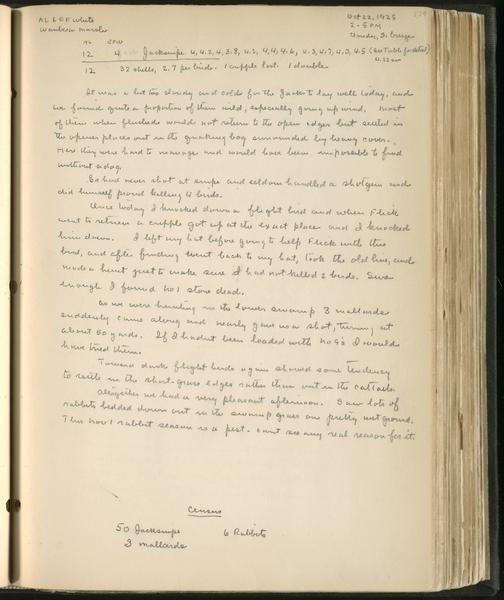 AL LEF White
Waubesa Marsh
Oct 22, 1925
2-5 PM
Cloudy, S. breeze
AL EFW
12 4 Jacksnipe 4, 4.2, 4, 3.8, 4.2, 4, 4, 4.6, 4.3, 4.7, 4.3, 4.5 (See Table for detail)
4.22 av
12 32 shells, 2.7 per bird. 1 cripple lost. 1 double
It was a bit too cloudy and cold for the Jacks to lay well today, and
we found quite a proportion of them wild, especially going up wind. Most
of them when flushed would not return to the open edges but settled in
the opener places out in the quaking bog surrounded by heavy cover.
Here they were hard to manage and would have been impossible to find
without a dog.
Ed had never shot at snipe and seldom handled a shotgun and
did himself proud killing 4 birds.
Once today I knocked down a flight bird and when Flick
went to retrieve a cripple got up at the exact place and I knocked
him down. I left my hat before going to help Flick with this
bird, and after finding went back to my hat, took the old line, and
made a hunt just to make sure I had not killed 2 birds. Sure
enough I found no 1 stone dead.
As we were hunting in the lower swamp 3 mallards
suddenly came along and nearly gave us a shot, turning at
about 50 yards. If I hadn't been loaded with no 9's I would
have tried them.
Toward dark flight birds again showed some tendency
to settle in the short-grass edges rather than out in the cattails
Altogether we had a very pleasant afternoon. Saw lots of
rabbits bedded down out in the swamp grass on pretty wet ground.
This Nov 1 rabbit season is a pest - can't see any real reason for it.
Census
50 Jacksnipe 6 Rabbits
3 mallards